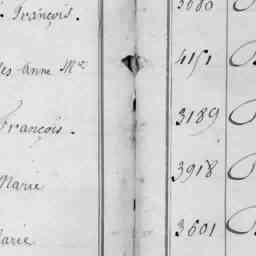 François. 3080
Anne Mie 4151
François. 3189
Marie 3918
Marie 3601